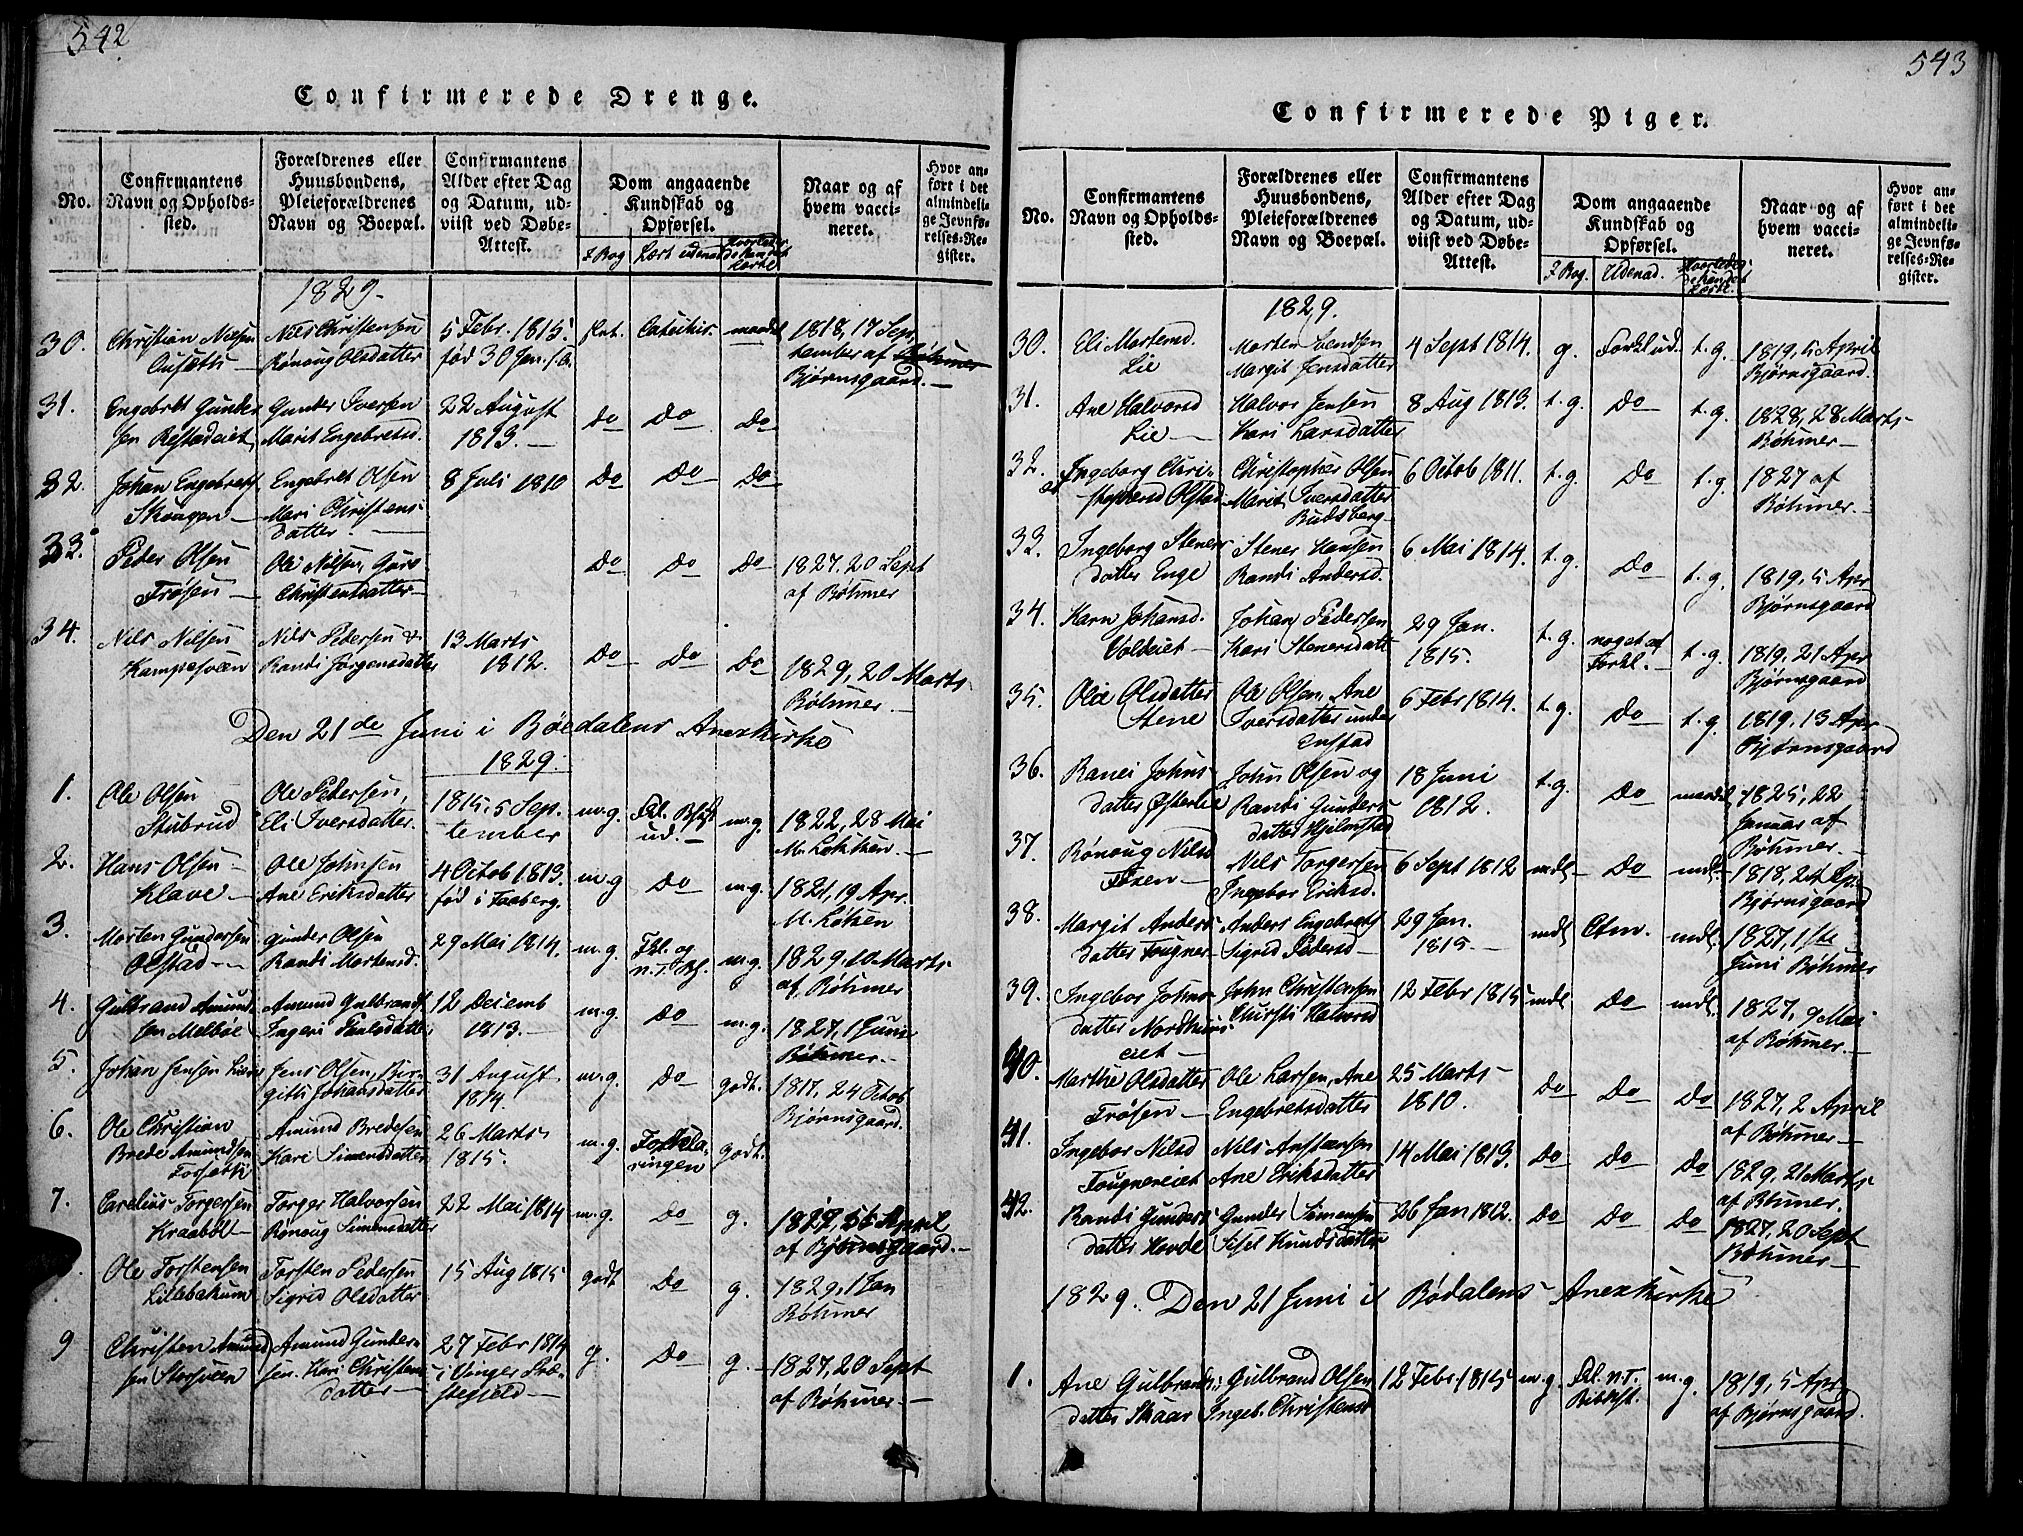 542.
Confirmerede Drenge.
No.
Confirmantens
Navn og Opholds-
sted.
Forældrenes eller
Huusbondens,
Pleieforældrenes
Navn og Boepæl.
Confirmantens
Alder efter Dag
og Datum, ud-
viist ved Døbe-
Attest.
Dom angaaende
Kundskab og
Opførsel.
I Bog
Lært udenad
Naar og af
hvem vacci-
neret.
Hvor an-
ført i det
almindeli-
ge Jevnfø-
relses-Re-
gister.
1829.
30.
Christian Nilsen
Nils Christensen
Rønoug Olsdatter
5 Febr. 1815.
fød 30 Jan. s.A.
maadel
1818, 17 Sep.
tember af Bøhmer
Bjørnsgaard.
31.
Engebret Gunder
sen
Gunder Iversen
Marit Engebretsd.
22 August
1813.
Do Do Do
32.
Johan Engebrets
Skougen
Engebret Olsen
Mari Christens
datter
8 Juli 1810
Do Do Do
33.
Peder Olsen
Frøsen
Ole Nilsen,
Christensdatter
Do Do Do
1827. 20 Sept
af Bøhmer
34.
Nils Nilsen
Kampesveen
Nils Pedersen &
Randi Jørgensdatter
13 Marts
1812.
Do Do Do
1829, 20 Marts
Bøhmer
Den 21de Juni i Bødalens Anexkirke
1829.
1.
Ole Olsen
Stubrud
Ole Pedersen,
Eli Iversdatter
1815. 5 Sep-
tember
m.g.
ud.
m.g.
1822, 28 Mai
M. Løkken
2.
Hans Olsen
Klave
Ole Johnsen
Ane Eriksdatter
4 Octob 1813.
fød i Faaberg.
m.g Do m.g.
1821, 19 Apr.
M. Løken
3.
Morten Gundersen
Olstad
Gunder Olsen
Randi Mortensd.
29 Mai 1814.
m.g.
m.g.
1829, 10 Marts
af Bøhmer
4.
Gulbrand Amund
sen Melbøe
Amund Gulbrands
Ingeri Poulsdatter
12 Decemb
1813.
m.g. Do m.g.
1827, 1 Juni
Bøhmer
5.
Johan Jensen
Jens Olsen, Bir-
gith Johansdatter
31 August
1814.
m.g. Do godt.
1817, 24 Octob
Bjørnsgaard.
6.
Ole Christian
Brede Amundsen
Forsætti
Amund Bredesen
Kari Simensdatter
26 Marts
1815.
m.g. Forkla-
ringen godt.
7.
Carelius Torgersen
Kraabøl
Torger Halvorsen
Rønoug Simensdatter
22 Mai 1814
m.g. Do g.
April
af Bjørnsgaard.
Ole Torstensen
Lillebakum
Torsten Pedersen
Sigrid Olsdatter
15 Aug 1815
godt Do g.
1829, 1 Jan
Bøhmer
9
Christen Amund
sen Storsveen
Amund Gunder-
sen. Kari Christens
datter
27 Febr 1814
i Vinger Præ-
stegjeld
g. Do g.
1827, 20 Sept
af Bøhmer
543
Confirmerede Piger.
No.
Confirmantens
Navn og Opholds-
sted.
Forældrenes eller
Huusbondens,
Pleieforældrenes
Navn og Boepæl.
Confirmantens
Alder efter Dag
og Datum, ud-
viist ved Døbe-
Attest.
Dom angaaende
Kundskab og
Opførsel.
I Bog.
Udenad.
Naar og af
hvem vacci-
neret.
Hvor an-
ført i det
almindeli-
ge Jevnfø-
relses-Re-
gister.
1829.
30.
Eli Mortensd.
Lie
Morten
Margit Jensdatter
4 Sept 1814.
g. Forkl ud. t.g.
1819, 5 April
Bjørnsgaard.
31.
Ane Halvorsd
Lie
Halvor Jensen
Kari Larsdatter
8 Aug 1813.
t.g. Do t.g.
1828, 28 Marts
Bøhmer
32.
Ingeborg Chri-
stophersd Olstad
Christopher Olsen
Marit Iversdatter
Budsberg
6 Octob 1811.
t.g. Do t.g.
1827 af
Bøhmer.
33.
Ingeborg Steners
datter Enge
Stener Hansen
Randi Andersd.
6 Mai 1814.
t.g. Do t.g.
1819, 5 Apr
Bjørnsgaard
34.
Karn Johansd.
Voldeiet
Johan Pedersen
Kari Stenersdatt
29 Jan.
1815.
t.g. noget af
Forkl. t.g.
1819, 21 Apr
Bjørnsgaard
35.
Olea Olsdatter
Stene
Ole Olsen, Ane
Iversdatter under
Enstad
6 Febr 1814.
t.g. Do t.g.
1819, 13 Apr
Bjørnsgaard
36.
Ranei Johns
datter Østerlie
John Olsen og
Randi Gunders
datter Hjelmstad
18 Juni
1812.
t.g. Do maadel
1825, 22
Januar af
Bøhmer.
37.
Rønoug Nilsd
Foxen
Nils Torgersen
Ingebor Eriksd.
6 Sept 1812
mdl Do mdl.
1818, 24 Sp.
Bjørnsgaard
38.
Margit Anders
datter Fougner
Anders Engebrets
Sigrid Pedersd
29 Jan.
1815.
mdl. Ctm. mdl.
1827, 1ste
Juni Bøhmer
39.
Ingebor Johns
datter Nordhuus
eiet
John Christensen
Christi Halvorsd
12 Febr 1815
mdl Do mdl.
1827, 9 Mai
af Bøhmer.
40.
Marthe Olsdatter
Frøsen
Ole Larsen, Ane
Engebretsdatter
25 Marts
1810.
Do Do Do
1827, 2 April
af Bøhmer
41.
Ingebor Nilsd
Fougnereiet
Nils Anstensen
Ane Eriksdatter
14 Mai 1813.
Do Do Do
1829, 21 Marts
af Bhmer.
42.
Randi Gunders
datter Hovde
Gunder Simensen
Sisel Knudsdatter
26 Jan 1812.
Do Do Do
1827, 20 Sept
Bøhmer
1829. Den 21 Juni i Bødalens Anexkirke
1.
Ane Gulbrands
datter Skaar
Gulbrand Olsen
Ingeb. Christensd
12 Febr. 1815
m.g. Fkl. n.T. m.g.
1819, 5 Apr
af Bjørnsgaard.